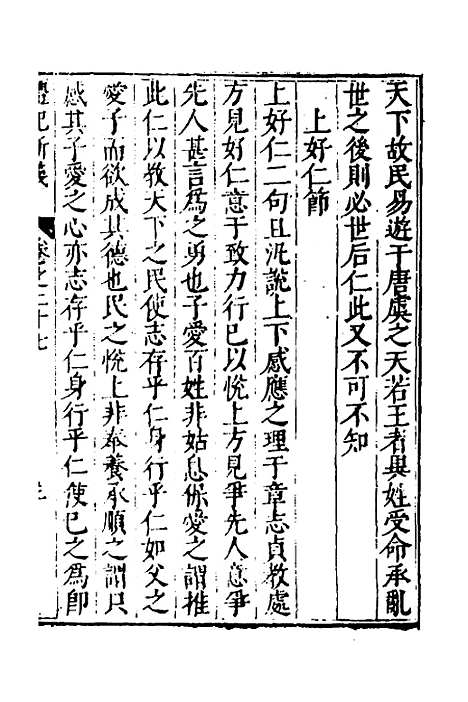 天下故民易遊于唐虞之天若王者與姓受命承亂
世之後則必世后仁此又不可不知
上好仁節
上好仁二句且汎說上下感應之理于章志貞教處
方見好仁意于致力行已以悅上方見爭先人意爭
先人甚言為之勇也子愛百姓非姑息保愛之謂推
此仁以教天下之民使志存乎仁身行乎仁如父之
愛子而欲成其德也民之悅上非奉養承順之謂只
感其子愛之心亦志存乎仁身行乎仁使已之為即
禮記新義
卷之二十七
三